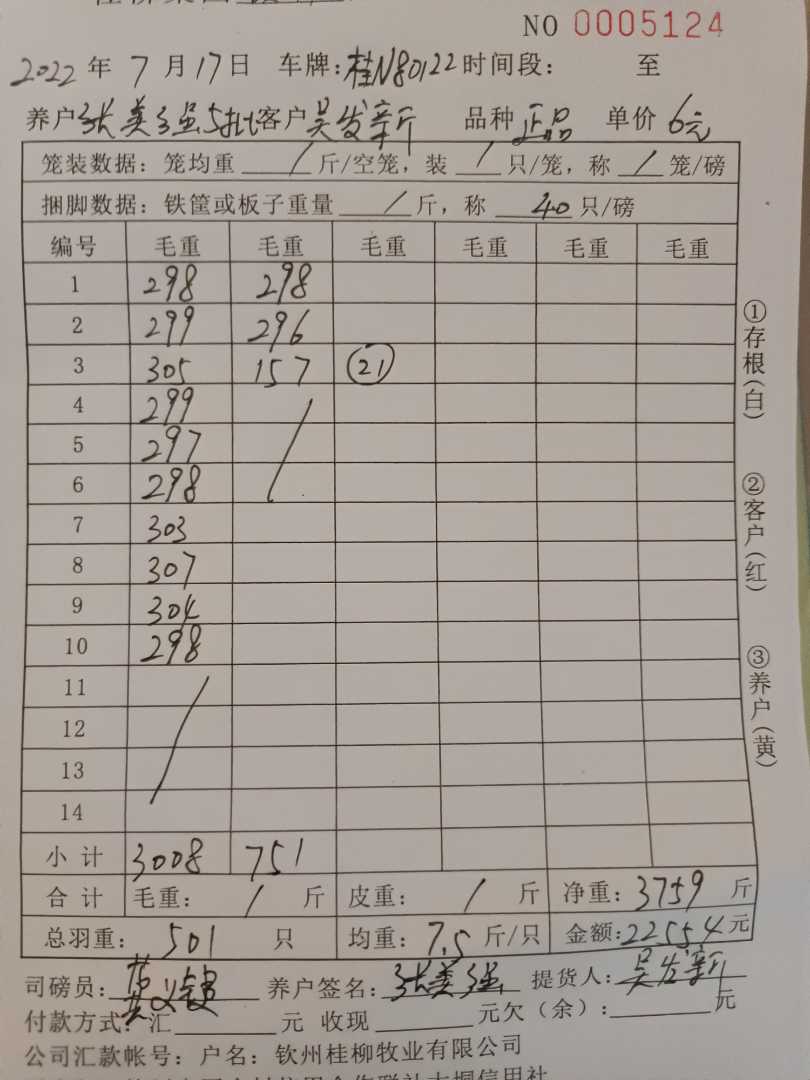 NO 0005124
2022 年 7 月 17 日 车牌: 桂N80122 时间段: 至
养户 张美强5批 客户 吴发新 品种 正品 单价 6元
笼装数据: 笼均重 / 斤/空笼, 装 / 只/笼, 称 / 笼/磅
捆脚数据: 铁筐或板子重量 / 斤, 称 40 只/磅
编号 毛重 毛重 毛重 毛重 毛重 毛重
1 298 298
2 299 296
3 305 157 ㉑
4 299 /
5 297
6 298
7 303
8 307
9 304
10 298
11 /
12
13
14
小计 3008 751
合计 毛重: / 斤 皮重: / 斤 净重: 3759 斤
总羽重: 501 只 均重: 7.5 斤/只 金额: 22554 元
司磅员: 养户签名: 张美强 提货人: 吴发新
付款方式: 汇 元 收现 元欠(余): 元
公司汇款帐号: 户名: 钦州桂柳牧业有限公司
①存根(白)
②客户(红)
③养户(黄)